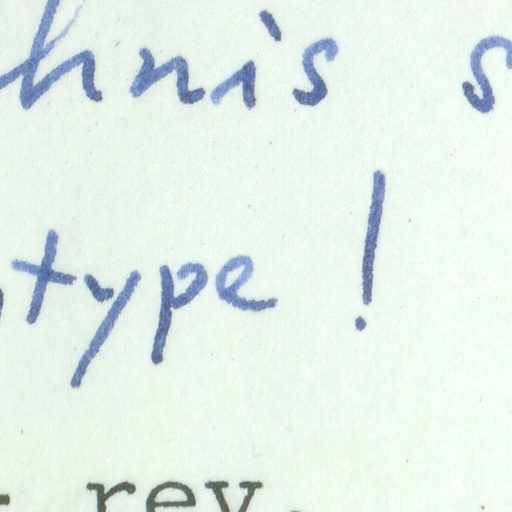 hnis s
type !
rev.